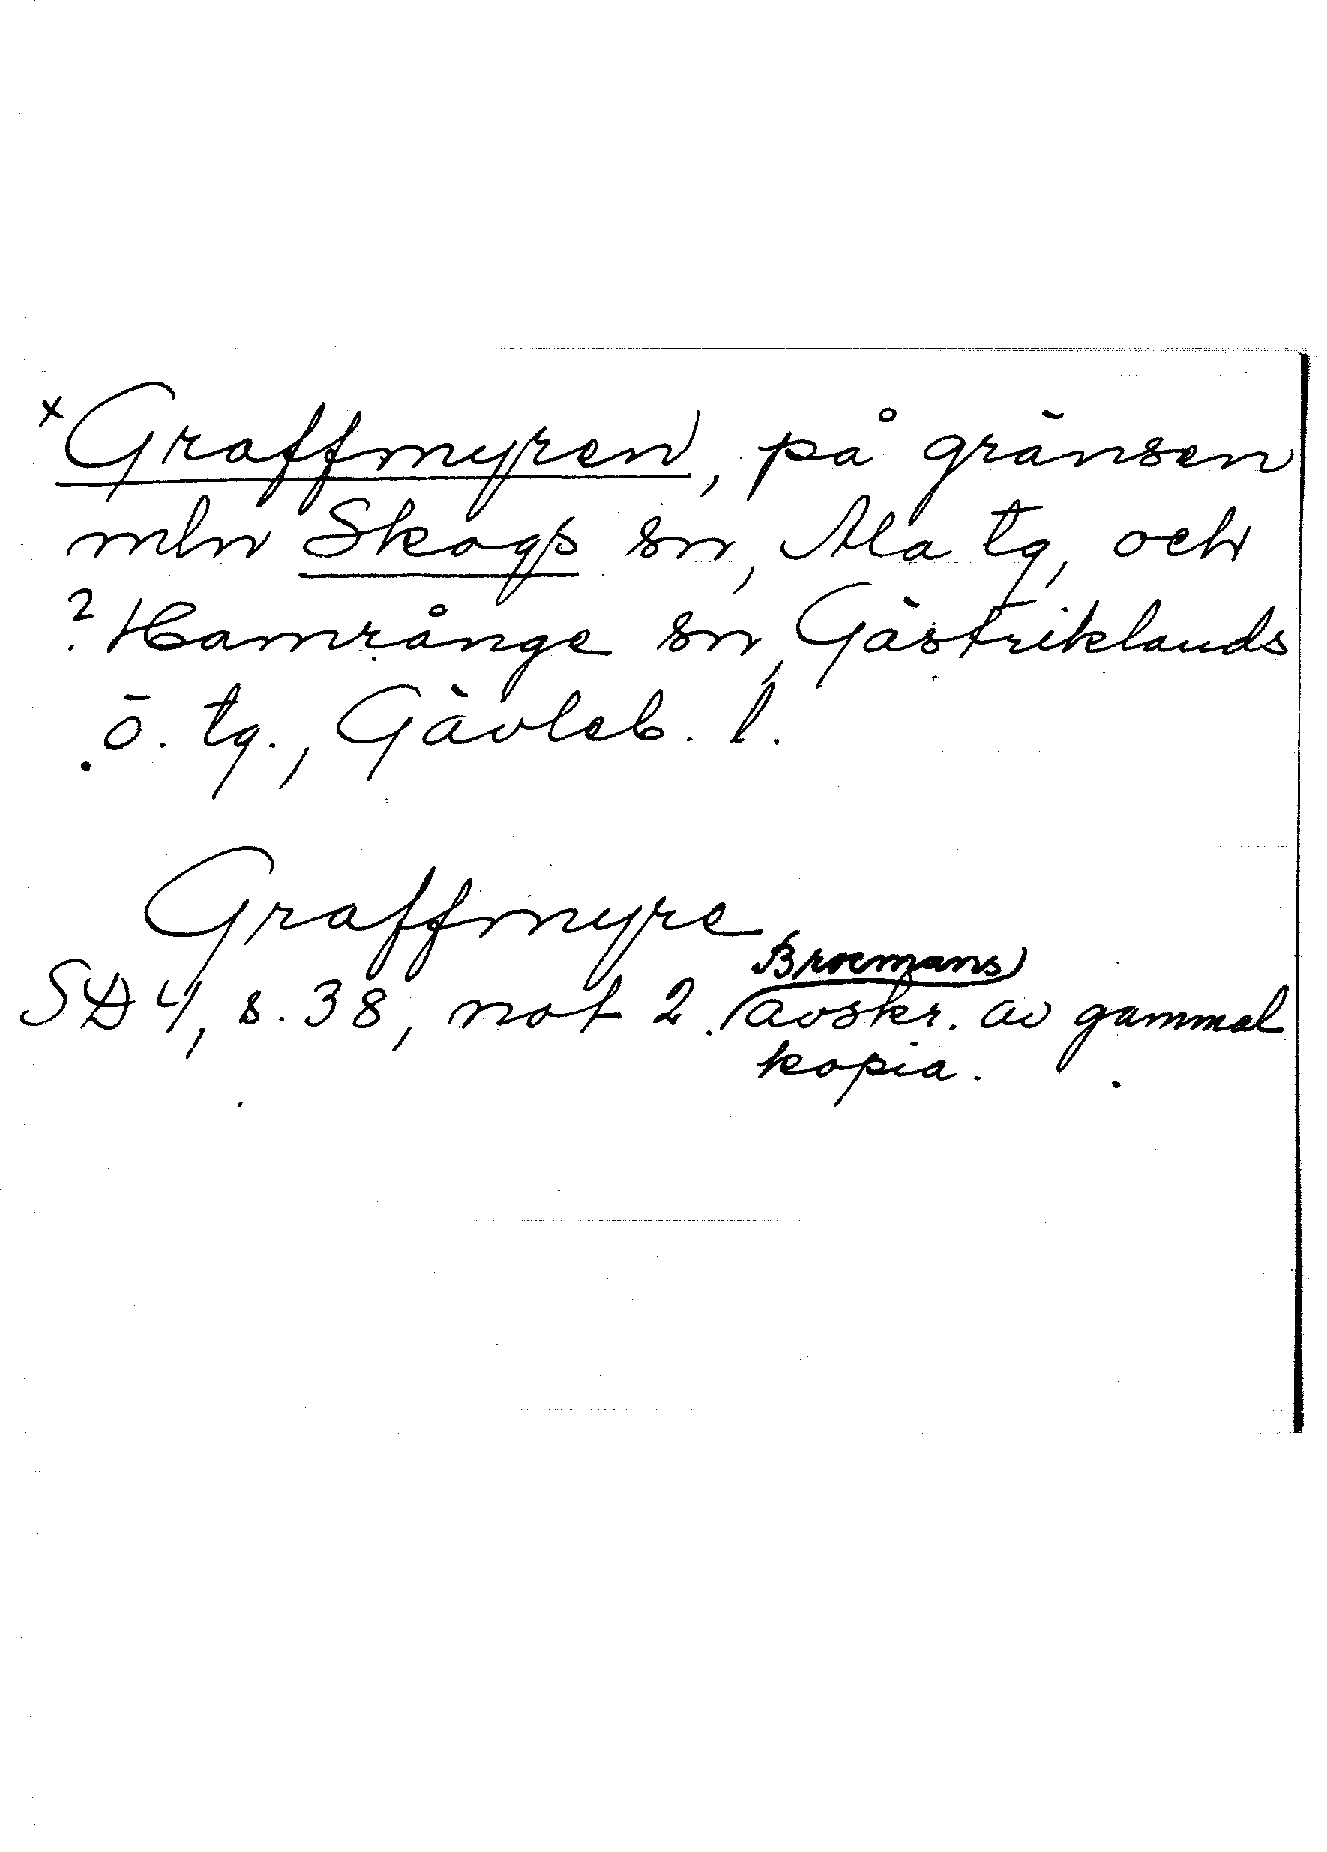 x Graffmyren, på gränsen
mln Skogs sn, Ala tg, och
? Hamrånge sn, Gästriklands
ö. tg., Gävleb. l.
Graffmyre
Broemans
SD 4, s. 38, not 2. avskr. av gammal
kopia.